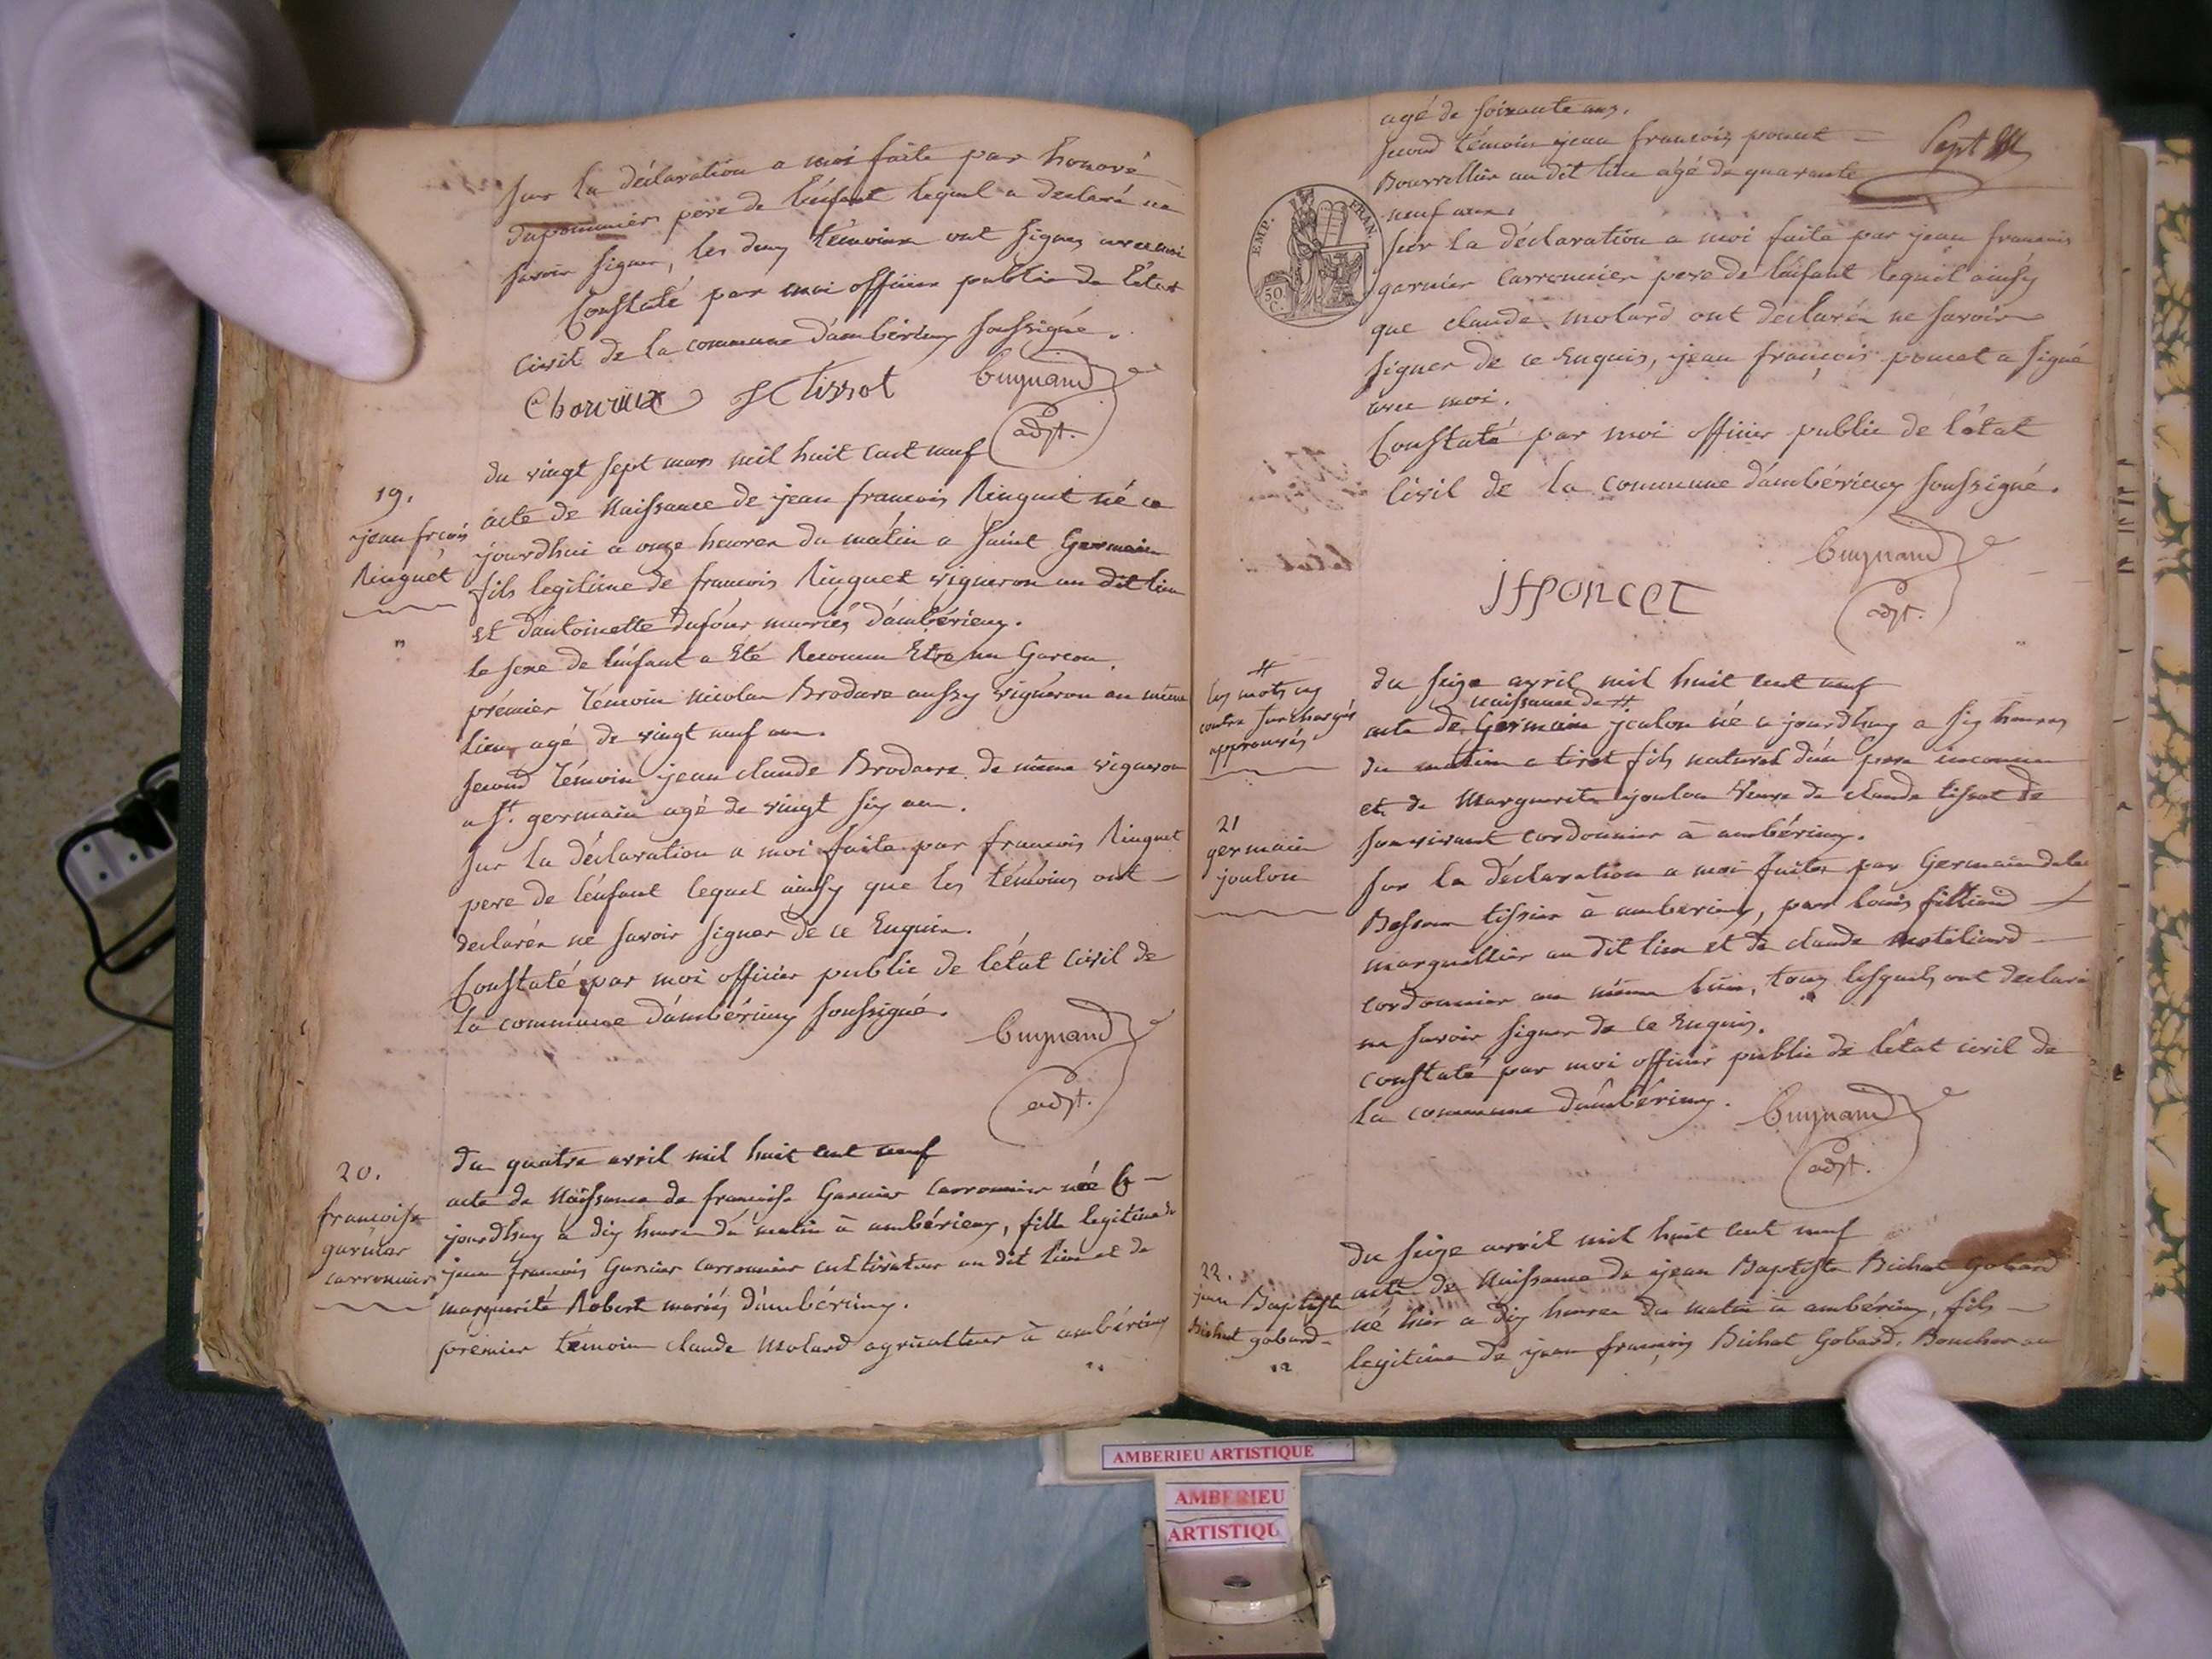 sur la déclaration a moi faite par honoré
dupommier pere de l'enfant lequel a declaré ne
savoir signer, les deux témoins ont signés avec moi
Constaté par moi officier public de l'état
civil de la commune d'ambérieux soussigné.
Charvieux JC Tissot Guynand
adjt.
19.
jean frcois
Ringuet
du vingt sept mars mil huit cent neuf
acte de Naissance de jean francois Ringuet né ce
jourdhui a onze heures du matin a saint Germain
fils legitime de francois Ringuet vigneron au dit lieu
et d'antoinette dufour mariés d'ambérieux.
le sexe de l'enfant a Eté Reconnu Etre un Garcon.
prémier témoin nicolas Brodare aussy vigneron au même
lieu, agé de vingt neuf ans.
second témoin jean claude Brodare de même vigneron
a St. germain agé de vingt six ans.
sur la déclaration a moi faite par francois Ringuet
pere de l'enfant lequel ainsy que les témoins ont
declarés ne savoir signer de ce Enquis.
Constaté par moi officier public de l'état civil de
la commune d'ambérieux soussigné.
Guynand
adjt.
20.
francoise
garnier
carronnier
du quatre avril mil huit cent neuf
acte de Naissance de francoise Garnier carronnier née ce
jourdhuy a dix heures du matin à ambérieux, fille legitime de
jean francois Garnier carronnier cultivateur au dit lieu et de
marguerite Robert mariés d'ambérieux.
premier témoin claude Molard agriculteur à ambérieux
agé de soixante ans.
second témoin jean francois poncet
Bourrellier au dit lieu agé de quarante
neuf ans.
Sept
EMP. FRAN.
50 C.
sur la déclaration a moi faite par jean francois
garnier carronnier pere de l'enfant lequel ainsy
que claude molard ont declarés ne savoir
signer de ce Enquis, jean françois poncet a signé
avec moi.
Constaté par moi officier public de l'état
Civil de la commune d'ambérieux soussigné.
Guynand
jfponcet
adjt.
#
les mots cy
contre surchargés
approuvés
21
germain
joulon
du seize avril mil huit cent neuf
naissance de #
acte de Germain joulon né ce jourdhuy a six heures
du matin a tiret fils naturel d'un pere inconnu
et de Marguerite joulon Veuve de claude tissot de
son vivant cordonnier à ambérieux.
sur la déclaration a moi faite par Germain dela
Besson tissier à amberieux, par louis filliand
marguillier au dit lieu et de claude
cordonnier au même lieu, tous lesquels ont declaré
ne savoir signer de ce Enquis.
constaté par moi officier public de l'état civil de
la commune d'ambérieux.
Guynand
adjt.
22.
jean Baptiste
Bichat gobard
du seize avril mil huit cent neuf
acte de Naissance de jean Baptiste Bichat Gobard
né hier a dix heures du matin à ambérieux, fils
legitime de jean françois Bichat Gobard, Boucher au
AMBERIEU ARTISTIQUE
AMBERIEU
ARTISTIQU